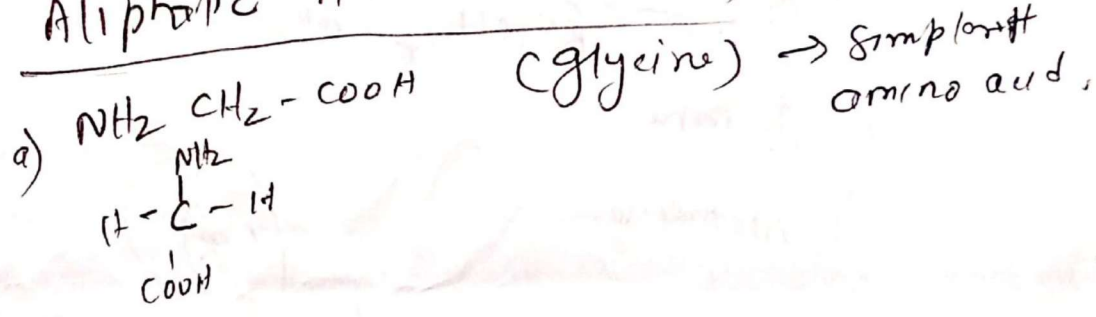 Aliphatic
a) NH2 CH2 - COOH (glycine) → Simplest
amino acid.
NH2
H - C - H
COOH